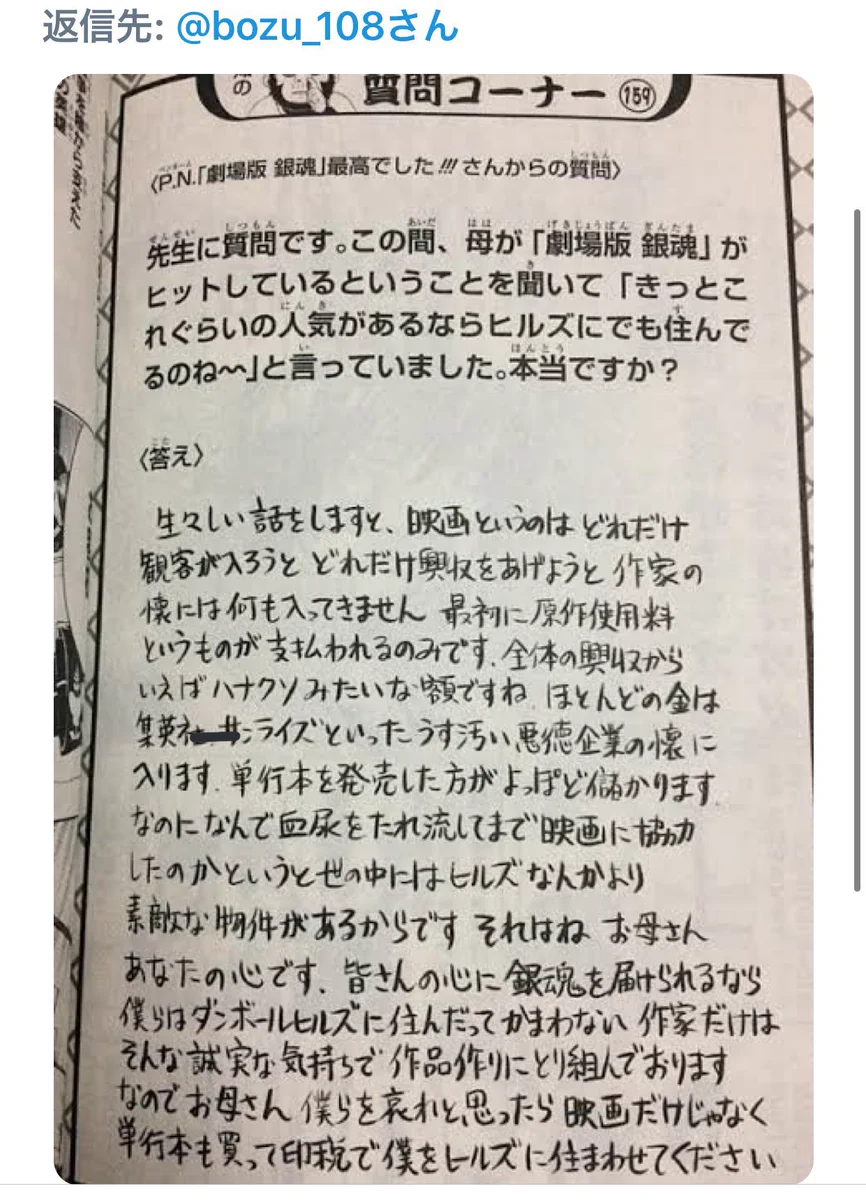 返信先: @bozu_108さん
の
質問コーナー 159
〈P.N.「劇場版 銀魂」最高でした!!! さんからの質問〉
先生に質問です。この間、母が「劇場版 銀魂」が
ヒットしているということを聞いて「きっとこ
れぐらいの人気があるならヒルズにでも住んで
るのね〜〜」と言っていました。本当ですか?
〈答え〉
生々しい話をしますと、映画というのは どれだけ
観客が入ろうと どれだけ興収をあげようと 作家の
懐には何も入ってきません 最初に原作使用料
というものが支払われるのみです。全体の興収から
いえばハナクソみたいな額ですね。ほとんどの金は
集英社 サンライズといったうす汚い悪徳企業の懐に
入ります。単行本を発売した方がよっぽど儲かります。
なのになんで血尿をたれ流してまで映画に協力
したのかというと世の中にはヒルズなんかより
素敵な物件があるからです それはね お母さん
あなたの心です。皆さんの心に銀魂を届けられるなら
僕らはダンボールヒルズに住んだってかまわない 作家だけは
そんな誠実な気持ちで 作品作りにとり組んでおります
なのでお母さん 僕らを哀れと思ったら 映画だけじゃなく
単行本も買って印税で僕をヒルズに住まわせてください